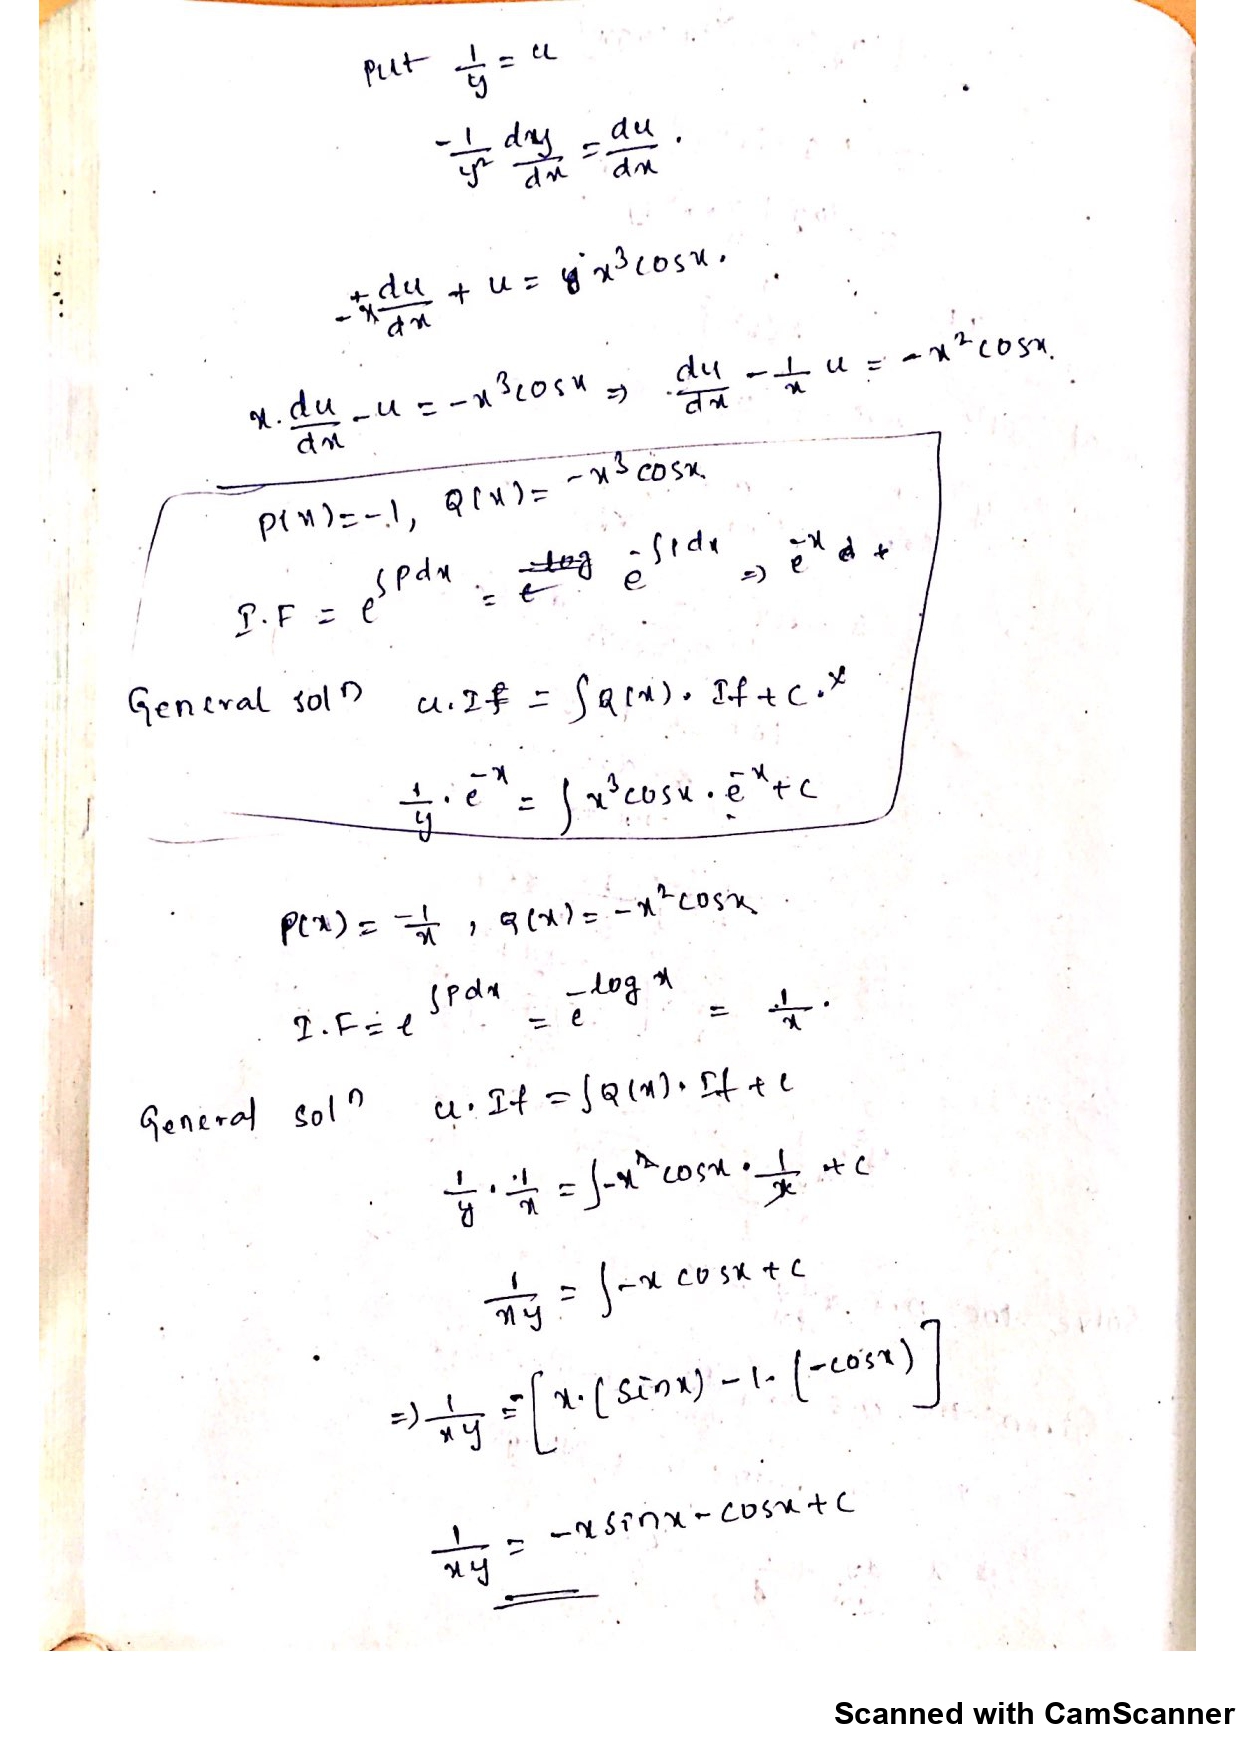 Put 1/y = u
-1/y² dy/dx = du/dx.
-x du/dx + u = x³cosx.
x. du/dx - u = -x³cosx ⇒ du/dx - 1/x u = -x²cosx.
P(x)=-1, Q(x)= -x³cosx.
I.F = e^∫Pdx = e^-∫1dx ⇒ e^-x
General solⁿ u.If = ∫Q(x). If + C.
1/y . e^-x = ∫x³cosx. e^-x + C
P(x) = -1/x, Q(x) = -x²cosx.
I.F = e^∫Pdx = e^-log x = 1/x.
General solⁿ u. If = ∫Q(x). If + C
1/y . 1/x = ∫-x²cosx . 1/x + C
1/xy = ∫-x cosx + C
⇒ 1/xy = -[x.(sinx) - 1. (-cosx)]
1/xy = -x sinx - cosx + C
Scanned with CamScanner